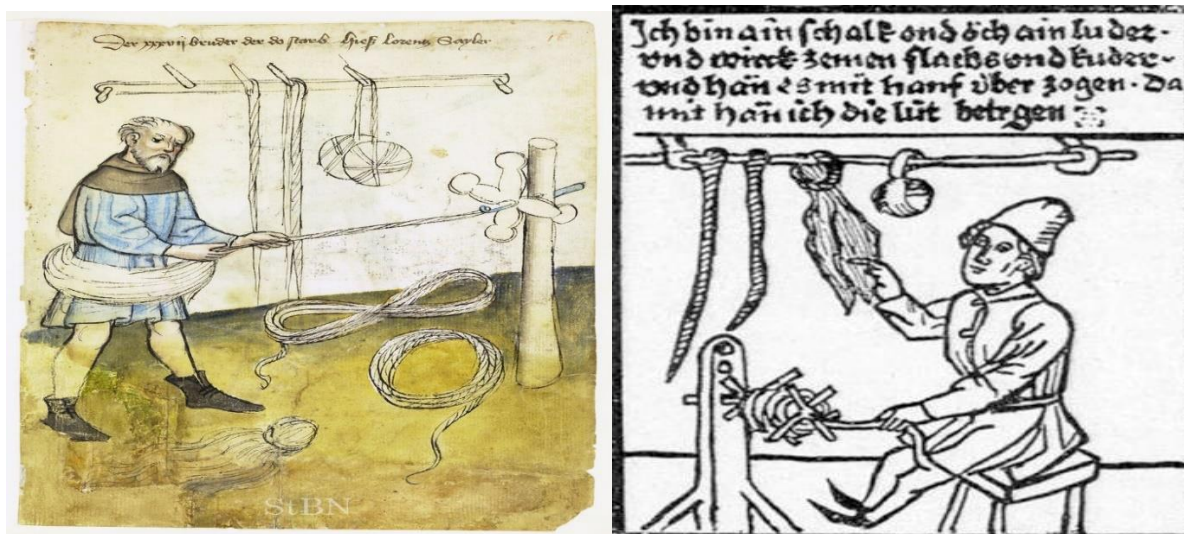 Der xxxvij bruder der do starb hieß Lorentz Sayler
Ich bin ain schalk ond öch ain luder·
vnd wirck zemen flachs vnd kuder·
vnd hän es mit hanf über zogen· Da
mit hän ich die lüt betrgen
StBN